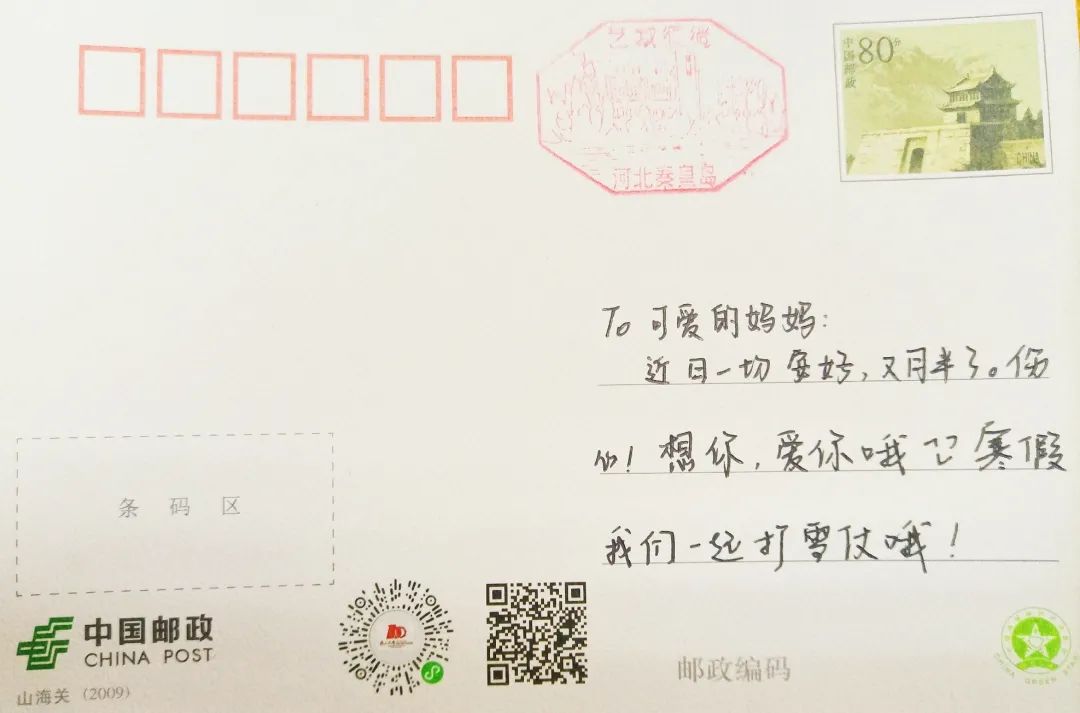 艺术汇缩
河北秦皇岛
中国邮政
80分
CHINA
To 可爱的妈妈:
近日一切安好,又月半了。伤
心!想你,爱你哦 寒假
我们一起打雪仗哦!
条码区
中国邮政
CHINA POST
山海关 (2009)
邮政编码